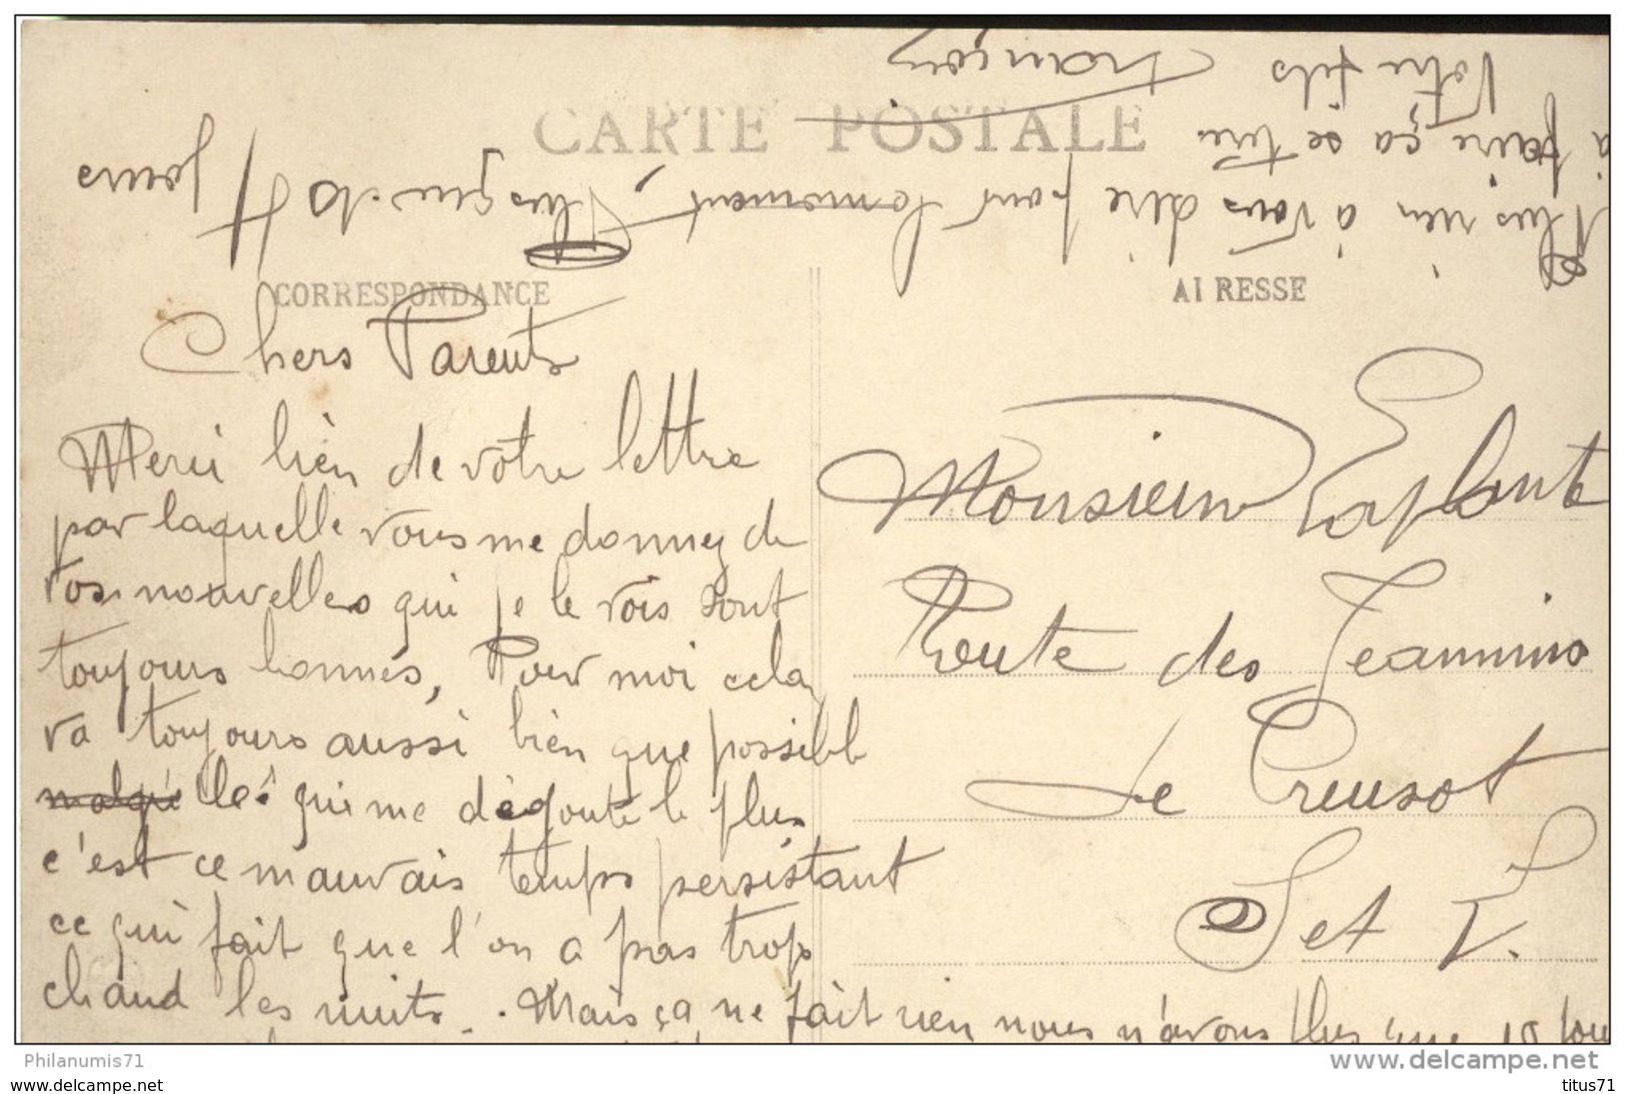 CARTE POSTALE
CORRESPONDANCE
Chers Parents
Merci bien de votre lettre
par laquelle vous me donnez de
vos nouvelles qui je le vois sont
toujours bonnes, Pour moi cela
va toujours aussi bien que possibl
malgré le qui me dégoute le plus
c'est ce mauvais temps persistant
ce qui fait que l'on a pas trop
chaud les nuits. Mais ça ne fait rien nous n'avons plus que 15 jou
Plus rien à vous dire pour le moment, Plus que 14 jours
à faire ça se tire
Votre fils François
AD RESSE
Monsieur Laplante
Route des Jeannins
Le Creusot
S et L.
Philanumis71
www.delcampe.net
www.delcampe.com
titus71